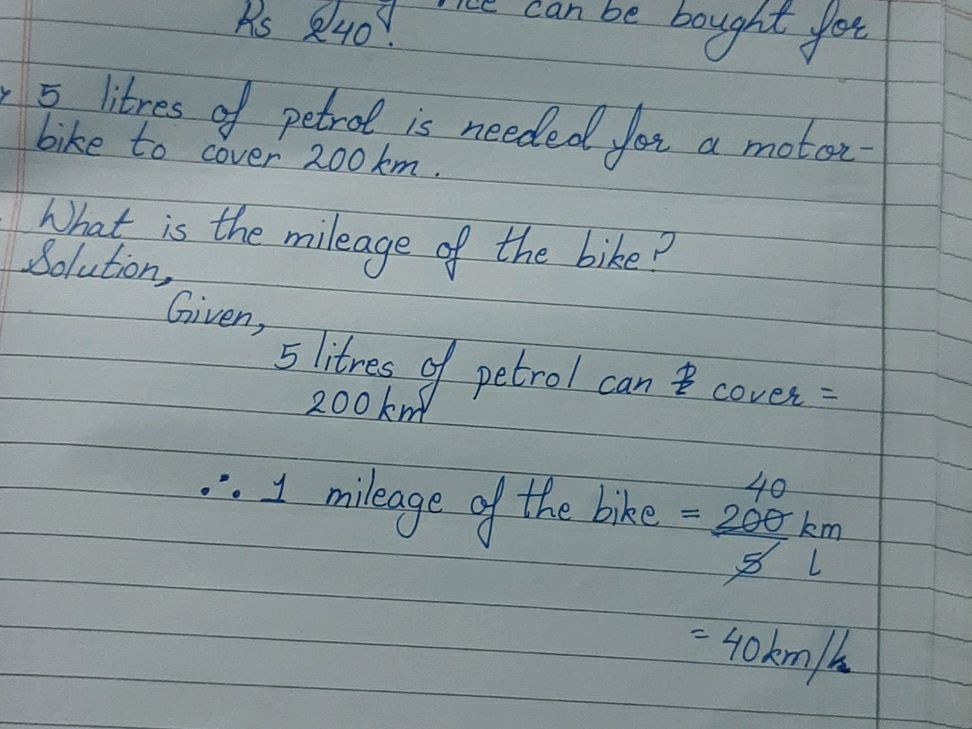 can be bought for
Rs 240.
5 litres of petrol is needed for a motor-
bike to cover 200 km.
What is the mileage of the bike?
Solution,
Given,
5 litres of petrol can cover =
200 km
∴ 1 mileage of the bike = 200 km
40
5 l
= 40 km/